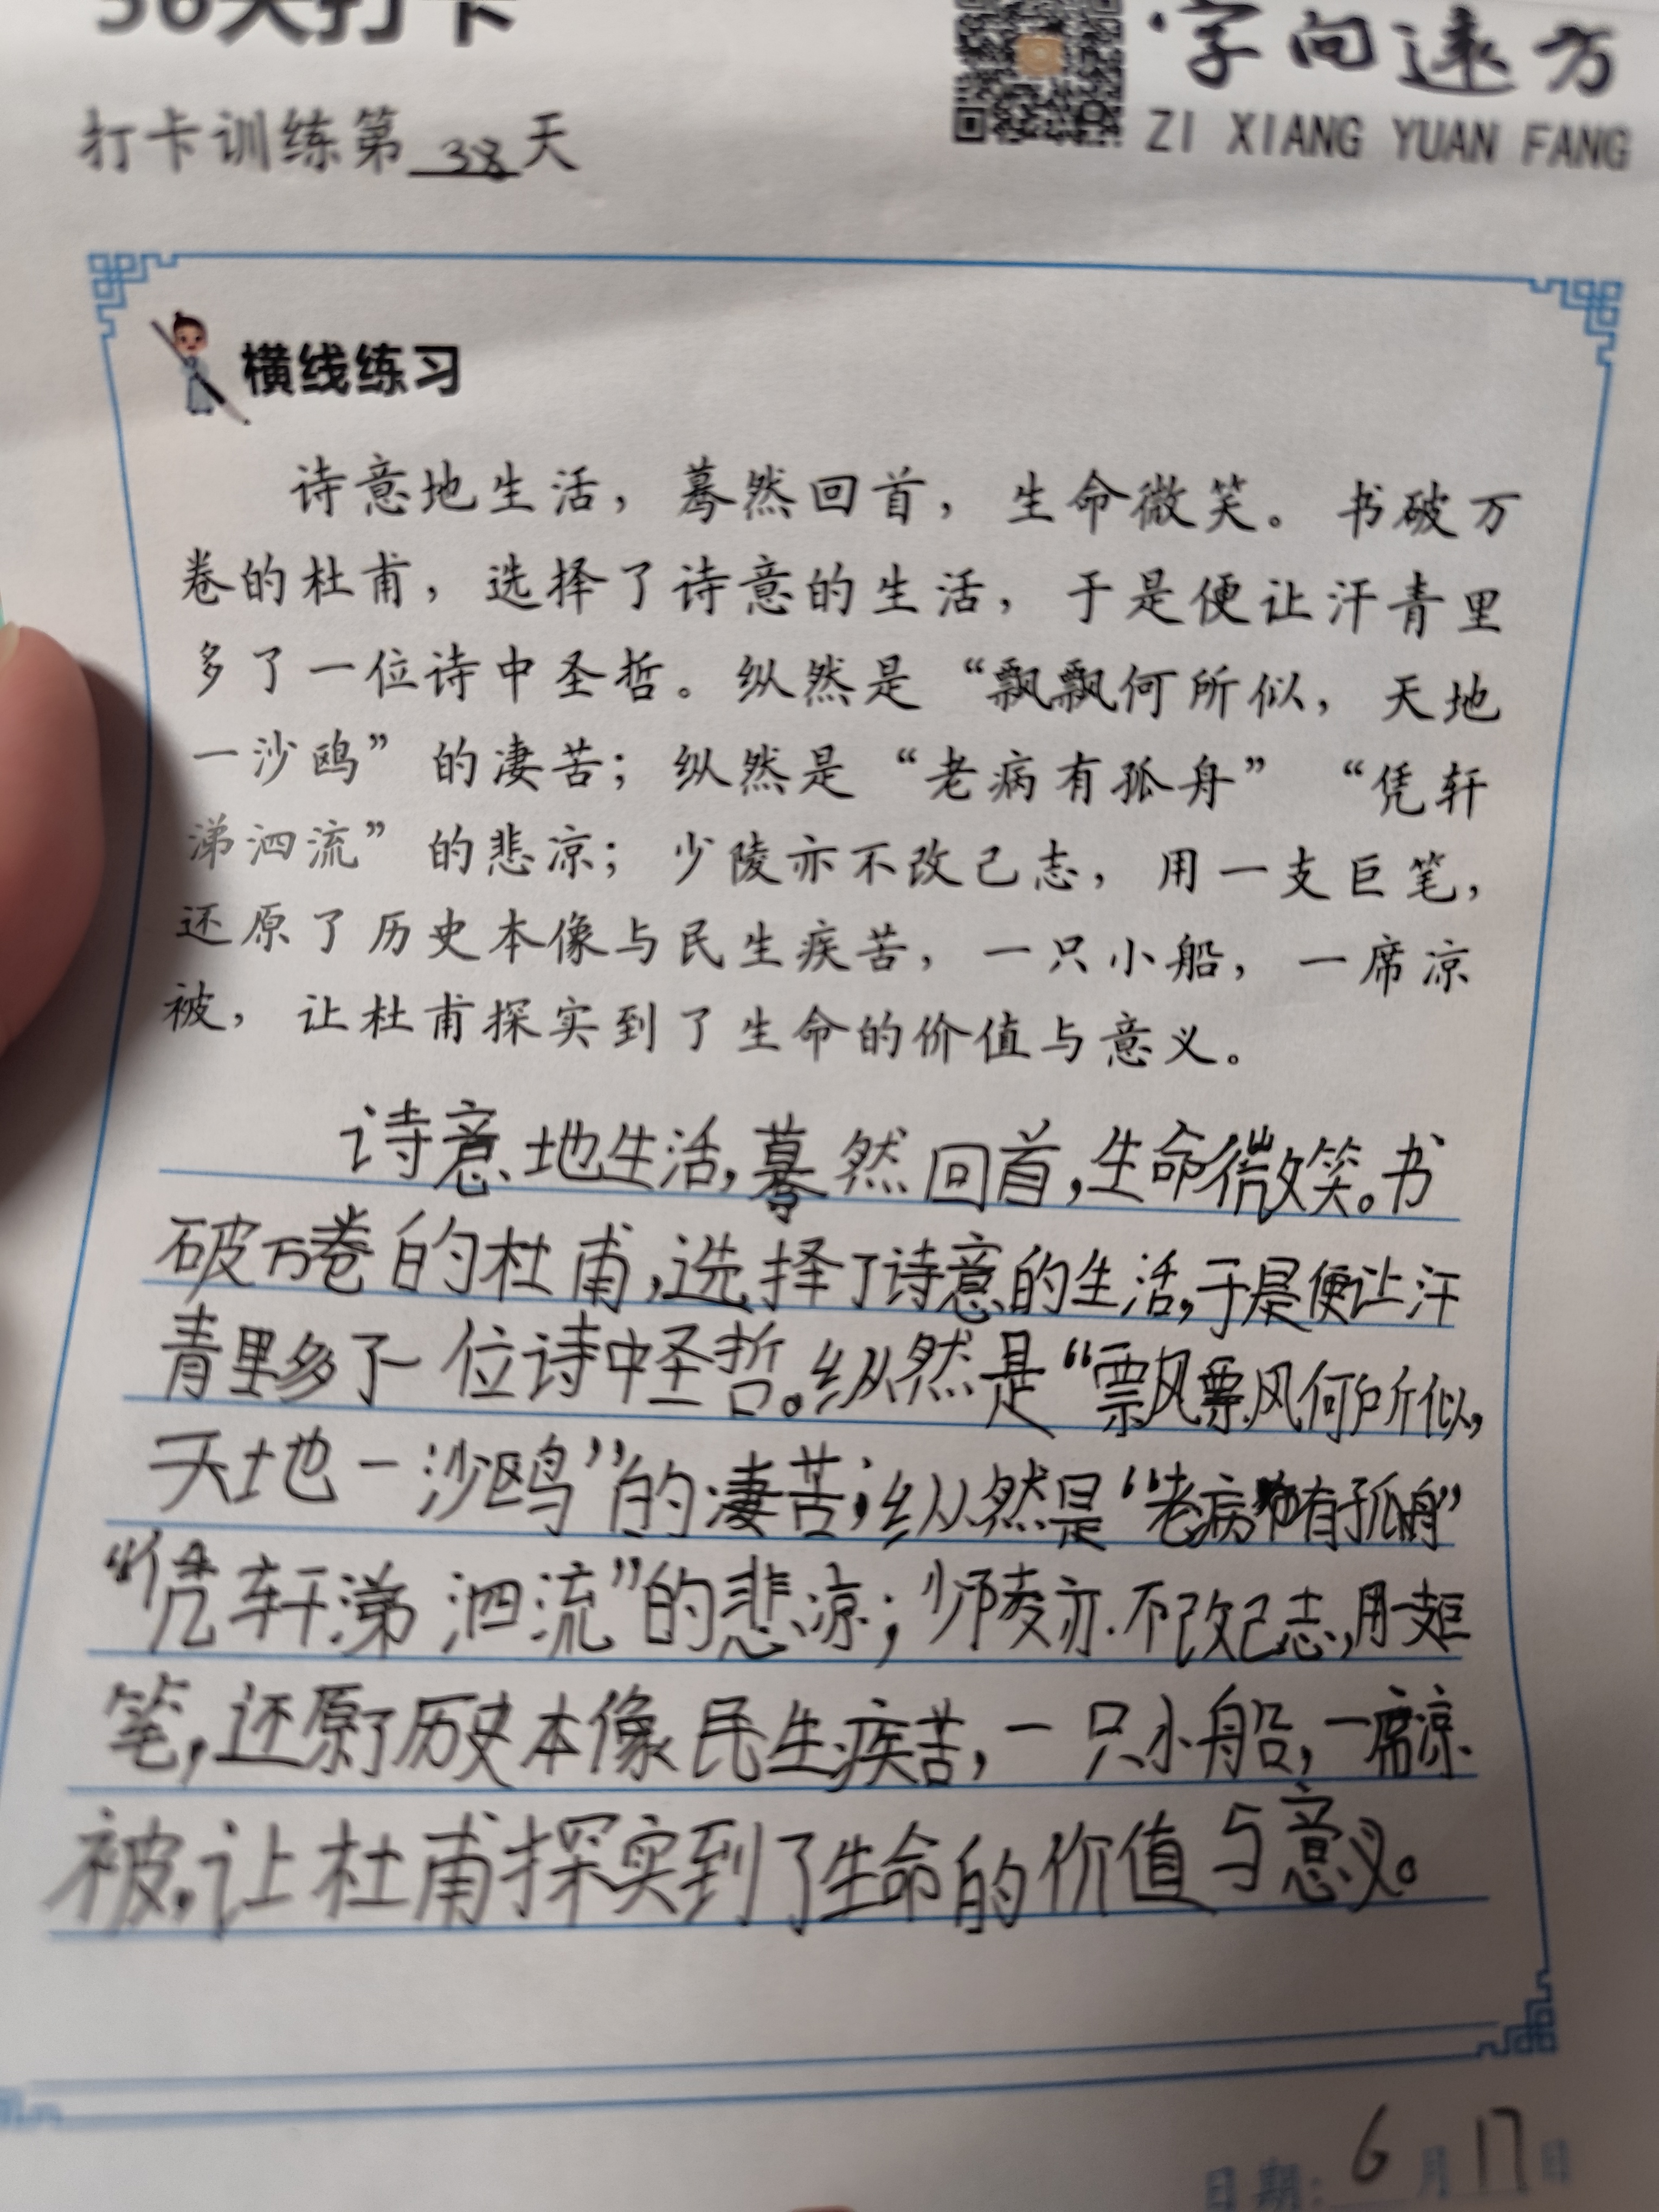 天打卡
字向远方
打卡训练第38天
ZI XIANG YUAN FANG
横线练习
诗意地生活，蓦然回首，生命微笑。书破万
卷的杜甫，选择了诗意的生活，于是便让汗青里
多了一位诗中圣哲。纵然是“飘飘何所似，天地
一沙鸥”的凄苦；纵然是“老病有孤舟”“凭轩
涕泗流”的悲凉；少陵亦不改己志，用一支巨笔，
还原了历史本像与民生疾苦，一只小船，一席凉
被，让杜甫探实到了生命的价值与意义。
诗意地生活，蓦然回首，生命微笑。书
破万卷的杜甫，选择了诗意的生活，于是便让汗
青里多了一位诗中圣哲。纵然是“飘飘何所似，
天地一沙鸥”的凄苦；纵然是“老病有孤舟”
“凭轩涕泗流”的悲凉；少陵亦不改己志，用一支巨
笔，还原了历史本像民生疾苦，一只小船，一席凉
被，让杜甫探实到了生命的价值与意义。
日期：6月17日